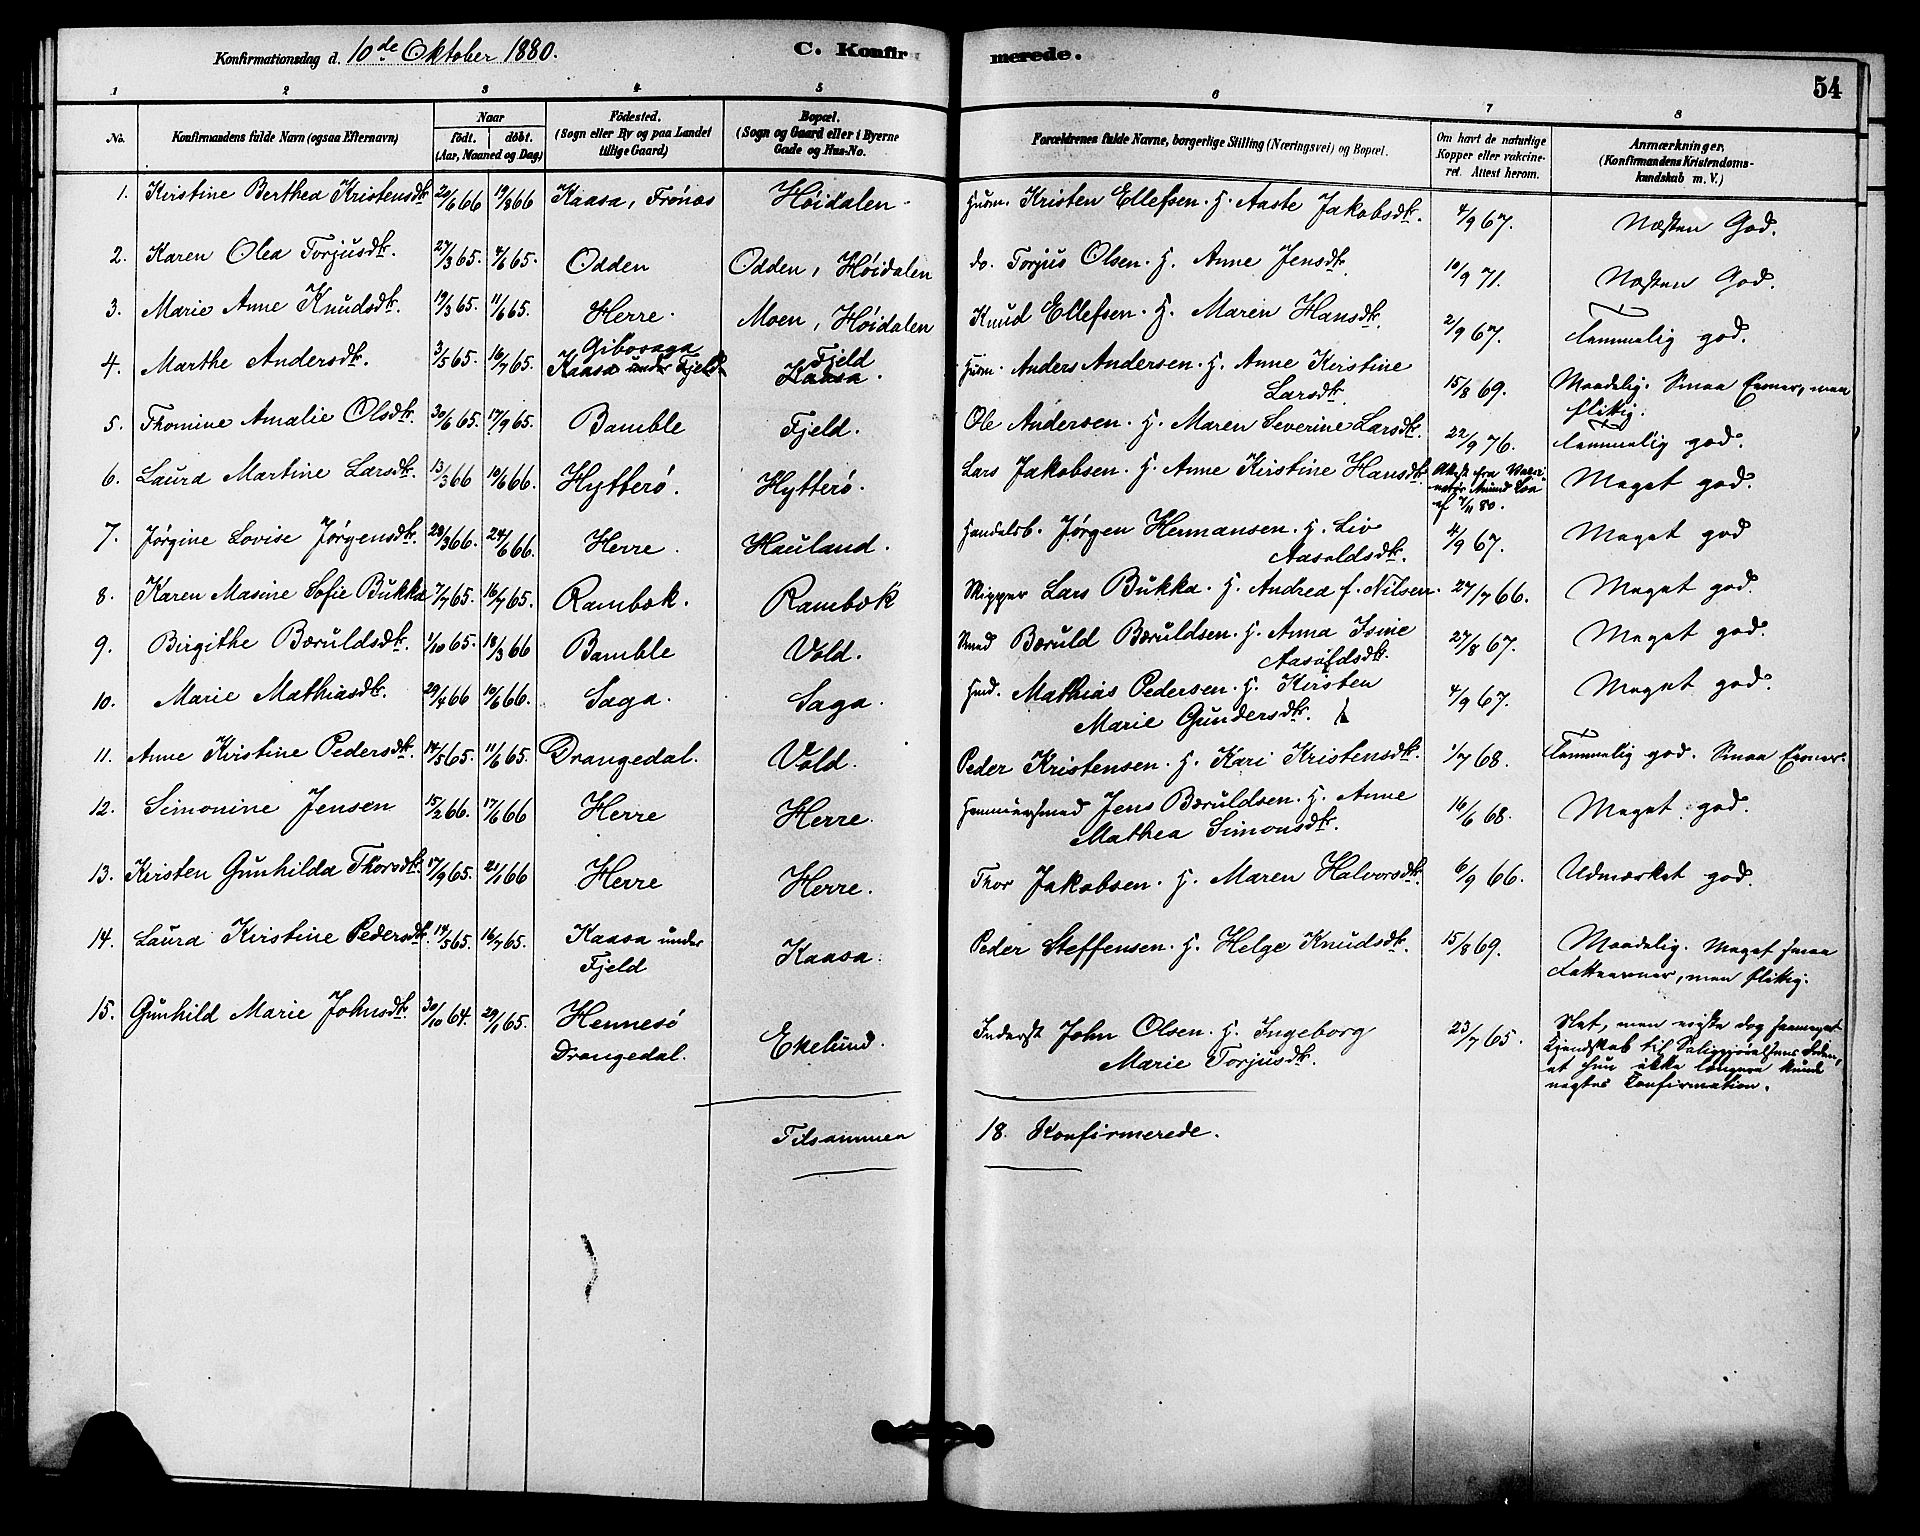 Konfirmationsdag d. 10de Oktober 1880.
C. Konfirmerede.
54
1 2 3 4 5 6 7 8
No. | Konfirmandens fulde Navn (ogsaa Efternavn) | Naar født. døbt. (Aar, Maaned og Dag) | Fødested. (Sogn eller By og paa Landet tillige Gaard) | Bopæl. (Sogn og Gaard eller i Byerne Gade og Hus-No. | Forældrenes fulde Navne, borgerlige Stilling (Næringsvei) og Bopæl. | Om havt de naturlige Kopper eller vakcineret. Attest herom. | Anmærkninger. (Konfirmandens Kristendomskundskab m. V.)
1. Kirstine Berthea Kristensdtr. 2/6 66 19/8 66 Kaasa, Frönæs Høidalen. Husm. Kristen Ellefsen. H. Aaste Jakobsdtr. 4/9 67. Næsten God.
2. Karen Olea Torjusdtr. 27/3 65. 4/6 65. Odden Odden, Høidalen do. Torjus Olsen. H. Anne Jensdtr. 10/9 71. Næsten God.
3. Marie Anne Knudsdtr. 19/3 65. 11/6 65. Herre. Moen, Høidalen Knud Ellefsen. H. Maren Hansdtr. 2/9 67. Temmelig god.
4. Marthe Andersdtr. 3/5 65. 16/7 65. Gibosaga Kaasa under Fjeld Fjeld Kaasa. Husm. Anders Andersen. H. Anne Kirstine Larsdtr. 15/8 69. Maadelig. Smaa Evner, men flittig.
5. Thomine Amalie Olsdtr. 30/6 65. 17/9 65. Bamble Fjeld. Ole Andersen. H. Maren Severine Larsdtr. 22/9 76. Temmelig god.
6. Laura Martine Larsdtr. 13/3 66 10/6 66. Hytterø. Hytterø. Lars Jakobsen. H. Anne Kirstine Hansdtr. Attest fra af 7/11 80. Meget god.
7. Jørgine Lovise Jørgensdtr. 28/3 66. 24/6 66. Herre. Hauland. Handelsb. Jørgen Hermansen. H. Liv Aasoldsdtr. 4/9 67. Meget god
8. Karen Masine Sofie Bukka 7/7 65. 16/7 65. Rambæk. Rambæk Skipper Lars Bukka. H. Andrea f. Nilsen. 27/7 66. Meget god.
9. Birgithe Bæruldsdtr. 1/10 65. 18/3 66 Bamble Vold. Smed Bæruld Bæruldsen. H. Anna Isine 27/8 67. Meget god.
10. Marie Mathiasdtr. 29/4 66 10/6 66. Saga. Saga. Husm. Mathias Pedersen. H. Kirsten Marie Gundersdtr. 4/9 67. Meget god.
11. Anne Kirstine Pedersdtr. 14/5 65. 11/6 65. Drangedal. Vold. Peder Kristensen. H. Kari Kristensdtr. 1/7 68. Temmelig god. Smaa Evner.
12. Simonine Jensen 15/2 66. 17/6 66 Herre Herre. Hammersmed Jens Bæruldsen. H. Anne Mathea Simonsdtr. 16/6 68. Meget god.
13. Kirsten Gunhilda Thorsdtr. 17/9 65. 21/1 66 Herre Herre. Thor Jakobsen. H. Maren Halvorsdtr. 6/9 66. Udmærket god.
14. Laura Kirstine Pedersdtr. 14/5 65. 16/7 65. Kaasa under Fjeld Kaasa. Peder Steffensen. H. Helge Knudsdtr. 15/8 69. Maadelig. Meget smaa Fatteevner, men flittig.
15. Gunhild Marie Johnsdtr. 30/10 64. 29/1 65. Hennesö Drangedal. Ekelund. Inderst John Olsen. H. Ingeborg Marie Torjusdtr. 23/7 65. Slet, men viste dog saameget Kjendskab til Saliggjørelsens Orden, at hun ikke længere kunde nægtes Confirmation.
Tilsammen 18 Konfirmerede.